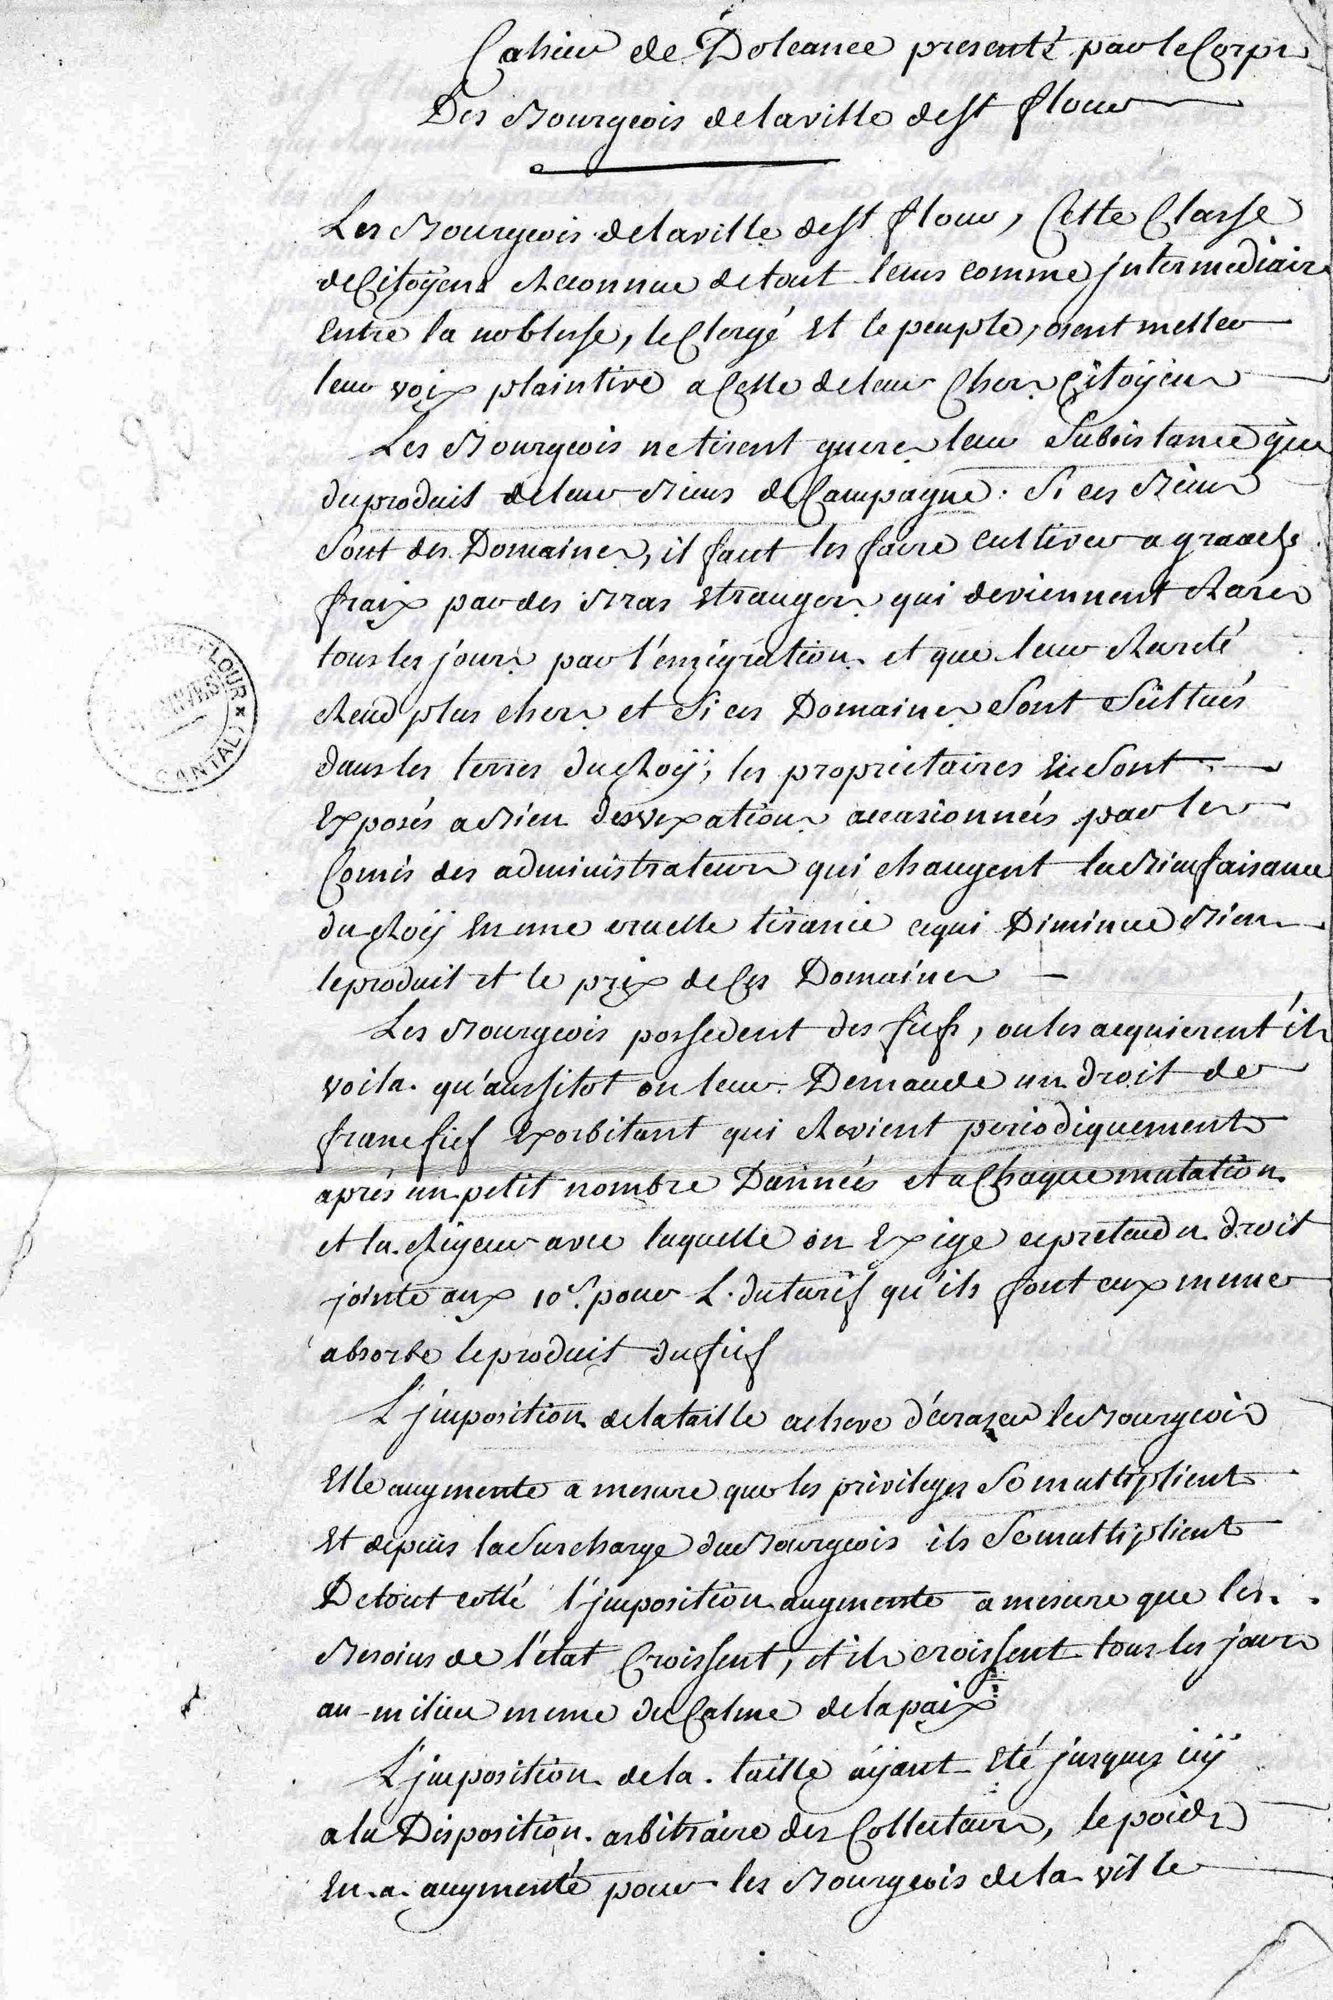 Cahier de Doleance presenté par le Corps
Des Bourgeois de la ville de st flour
Les Bourgeois de la ville de st flour, Cette Classe
de Citoÿens Reconnue de tout tems comme jntermediaire
Entre la noblesse, le Clergé Et le peuple, osent meller
leur voix plaintive a Celle de leurs Chers Citoÿens
Les Bourgeois ne tirent gueres leur Subsistance que
du produit de leurs Biens de Campagne. Si ces Biens
Sont des Domaines, il faut les faire cultiver a grands
fraix par des Bras Etrangers qui deviennent Rares
tous les jours par l'emigration et que leur Rareté
Rend plus chers et Si ces Domaines Sont Sittués
dans les terres du Roÿ, les proprietaires En Sont
Exposés a Bien des vexations occasionnées par les
Comis des administrateurs qui changent la Bienfaisance
du Roÿ En une cruelle tiranie cequi Diminue Bien
le produit et le prix de Ces Domaines
Les Bourgeois possedent des fiefs, ou les acquierent ils
voila qu'aussitot on leur Demande un droit de
franc fief Exorbitant qui Revient periodiquement
aprés un petit nombre Dannéés et a Chaque mutation
et la Rigeur avec laquelle on Exige ce pretendu droit
jointe aux 10 s. pour L. du tarif qu'ils font eux meme
absorbe le produit du fief
L'jmposition de la taille acheve d'écrazer le Bourgeois
Elle augmente a mesure que les privileges Se multiplient
Et depuis la Surcharge du Bourgeois ils Se multiplient
De tout cotté l'jmposition augmente a mesure que les
Besoins de l'état Croissent, et ils croissent tous les jours
au milieu meme du Calme de la paix
L'jmposition de la taille aÿant Eté jusques icÿ
a la Disposition arbitraire des Collecteurs, le poids
En a augmenté pour les Bourgeois de la ville
FLOUR
ARCHIVES
(CANTAL)